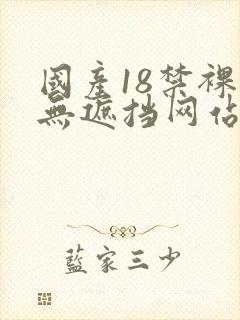 國産18禁裸
無遮挡网佔
藍家三少